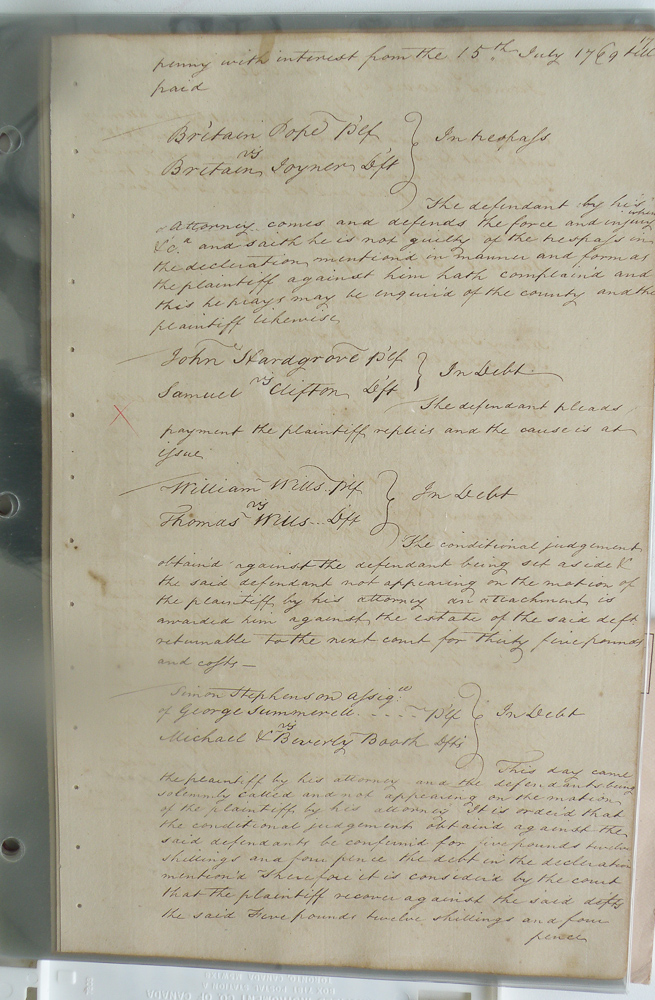 penny with interest from the 15th July 1769 till
paid
Britain Pope Plf
vs
Britain Joyner Dft
In trespass
The defendant by his
Attorney comes and defends the force and injury when
&c.a and saith he is not guilty of the trespass in
the declaration mentiond in manner and form as
the plaintiff against him hath complaind and
this he prays may be enquired of the county and the
plaintiff likewise
John Hardgrove Plf
vs
Samuel Clifton Dft
In Debt
The defendant pleads
payment the plaintiff replies and the cause is at
issue
William Wills Plf
vs
Thomas Wills Dft
In Debt
The conditional judgement
obtaind against the defendant being set aside &
the said defendant not appearing on the motion of
the plaintiff by his attorney an attachment is
awarded him against the estate of the said deft
returnable to the next court for thirty five pounds
and costs
Simon Stephenson Assigee
of George Summerell ---- Plf
vs
Michael & Beverly Booth Dfts
In Debt
This day came
the plaintiff by his attorney and the defendants being
solemnly called and not appearing on the motion
of the plaintiff by his attorney It is orderd that
the conditional judgement obtaind against the
said defendants be confirmd for five pounds twelve
shillings and four pence the debt in the declaration
mentiond Therefore it is considerd by the court
that the plaintiff recover against the said defts
the said Five pounds twelve shillings and four
pence